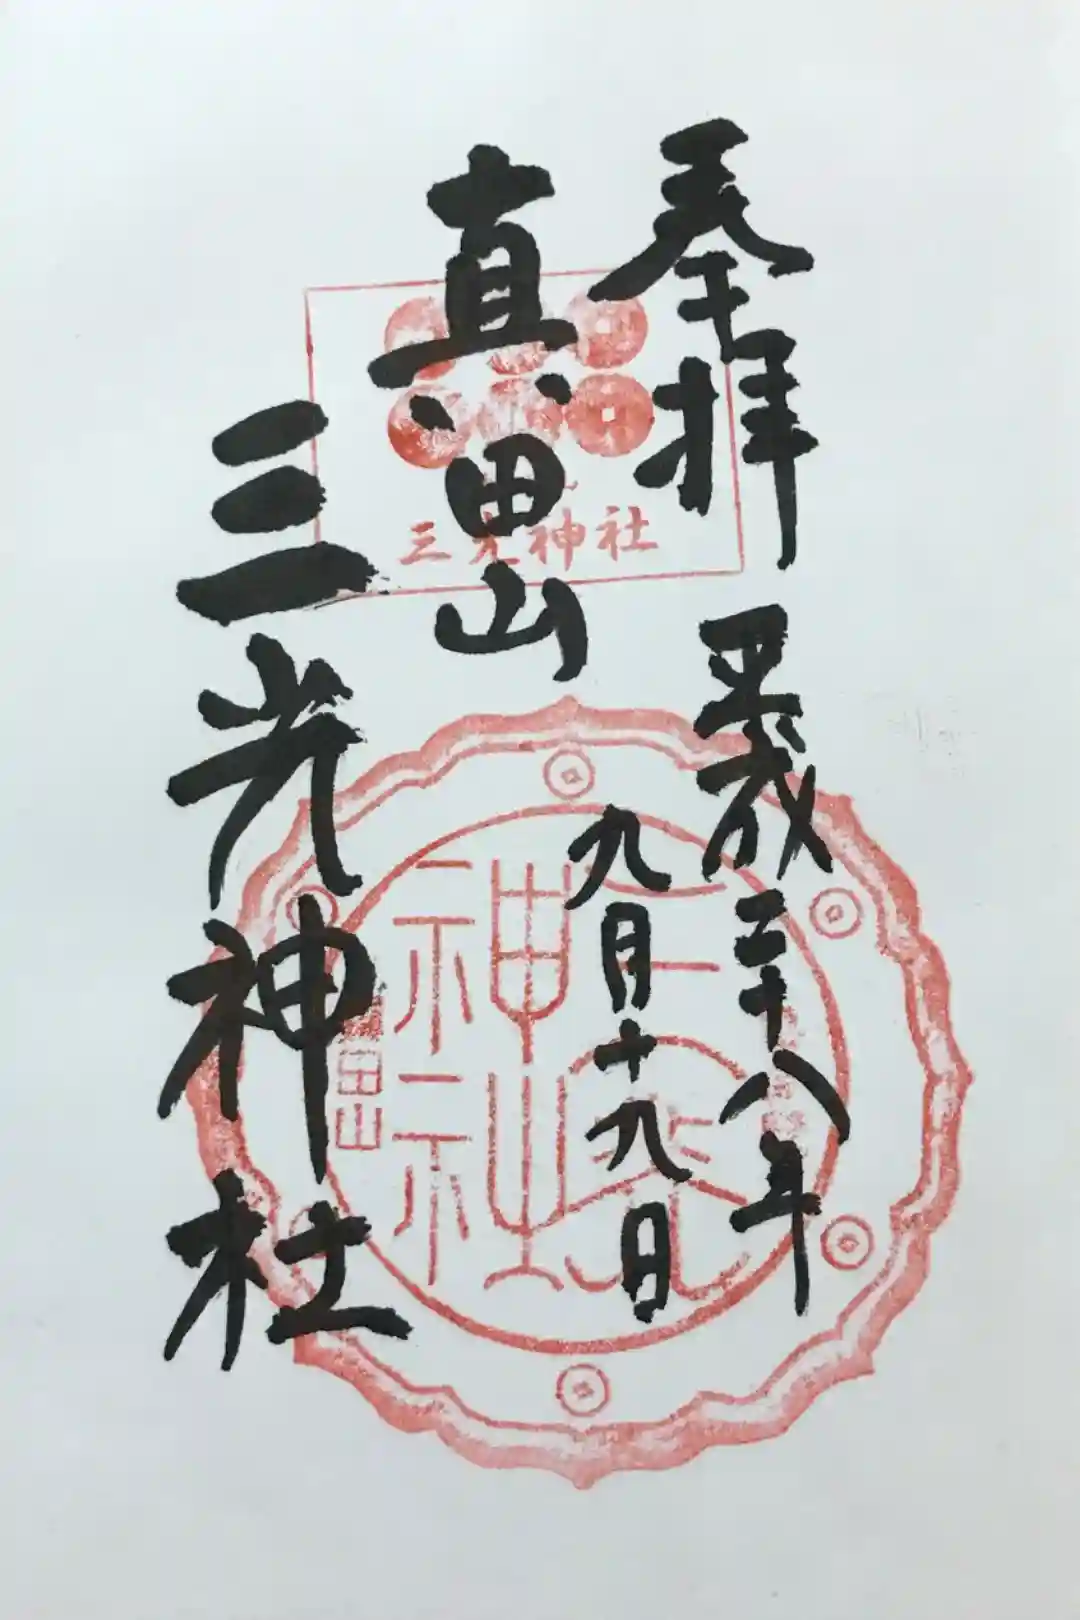 奉拝 平成二十八年
九月十九日
真田山
三光神社
三光神社
三光神社
真田山